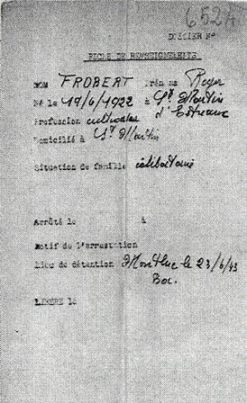 652A
DOSSIER N°
FICHE DE RENSEIGNEMENTS
NOM FROBERT Prénoms Roger
Né le 19/6/1922 à St Martin
d'Estreaux
Profession cultivateur
Domicilié à St Martin
Situation de famille célibataire
Arrêté le à
Motif de l'arrestation
Lieu de détention Montluc le 23/6/43
LIBERE le